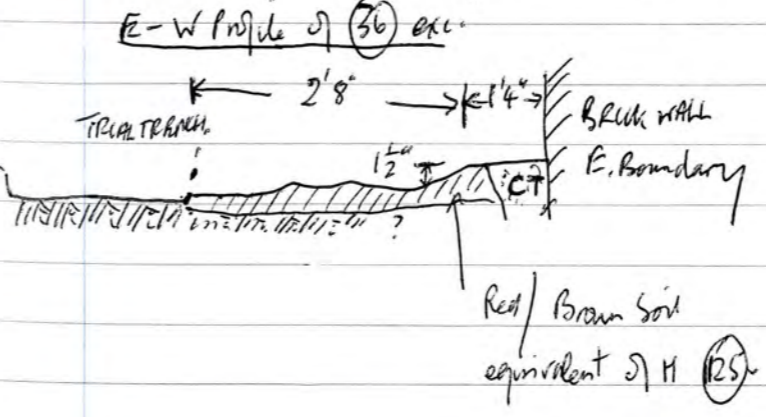 E-W Profile of 36 exc.
2'8"
1'4"
TRIAL TRENCH.
1½"
BRICK WALL
E. Boundary
CT
?
Red/Brown Soil
equivalent of H 125